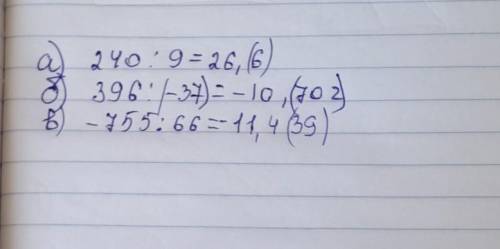 а) 240 : 9 = 26,(6)
б) 396 : (-37) = -10,(702)
в) -755 : 66 = -11,4(39)